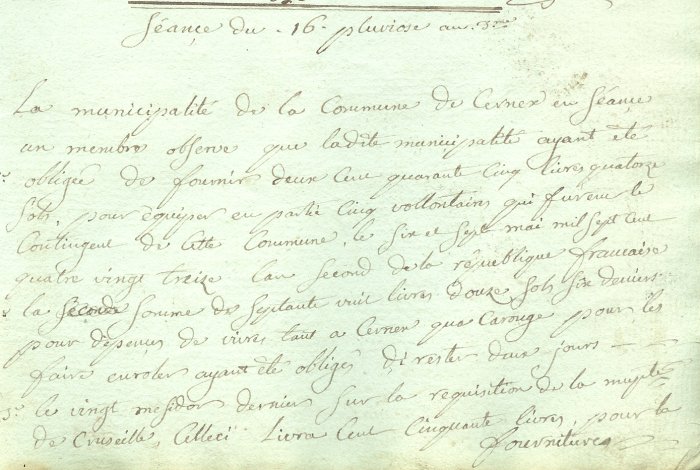 Séance du 16 pluviose an 3me
La municipalité de la Commune de Cernex en Séance
un membre observe que ladite municipalité ayant été
obligée de fournir deux Cent quarante Cinq livres quatorze
Sols, pour équiper en partie Cinq vollontairs qui furent le
Contingent de Cette Commune, le six et sept mai mil sept Cent
quatre vingt treize lan second de la republique francaise
la seconde somme de Septante huit livres douze Sols six deniers
pour dépences de vivres tant a Cernex qua Carouge pour les
faire enroler ayant été obligés di rester deux jours
3° le vingt mesidor dernier sur la requisition de la mupté
de Cruseille, Celleci Livra Cent Cinquante livres, pour la
fourniture